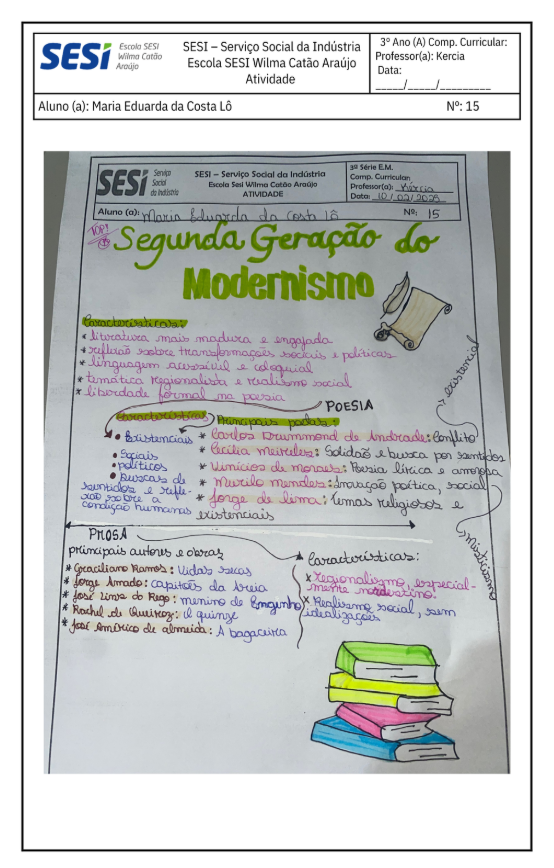 SESI
Escola SESI
Wilma Catão
Araújo
SESI – Serviço Social da Indústria
Escola SESI Wilma Catão Araújo
Atividade
3º Ano (A) Comp. Curricular:
Professor(a): Kercia
Data:
_____/_____/_________
Aluno (a): Maria Eduarda da Costa Lô Nº: 15
SESI
Serviço
Social
da Indústria
SESI – Serviço Social da Indústria
Escola Sesi Wilma Catão Araújo
ATIVIDADE
3ª Série E.M.
Comp. Curricular:
Professor(a): Kércia
Data: 10/02/2025
Aluno (a): Maria Eduarda da Costa Lô Nº: 15
TOP!
Segunda Geração do
Modernismo
Características:
* literatura mais madura e engajada
* reflexão sobre transformações sociais e políticas
* linguagem acessível e coloquial
* temática regionalista e realismo social
* liberdade formal na poesia
POESIA
Características
• Existenciais
• Sociais
• políticos
• Buscas de
sentidos e refle-
xão sobre a
condição humanas
Principais poetas:
* Carlos Drummond de Andrade: Conflito
existencial
* Cecília Meireles: Solidão e busca por sentidos
* Vinicios de moraes: Poesia lírica e amorosa
* Murilo mendes: Inovação poética, social
Misticismo
* Jorge de lima: temas religiosos e
existenciais
PROSA
principais autores e obras
* Graciliano Ramos: Vidas secas
* Jorge Amado: capitães da areia
* José Lins do Rego: menino de Engenho
* Rachel de Queiroz: O quinze
* José Américo de almeida: A bagaceira
* Características:
* Regionalismo, especial-
mente nordestino.
* Realismo social, sem
idealizações